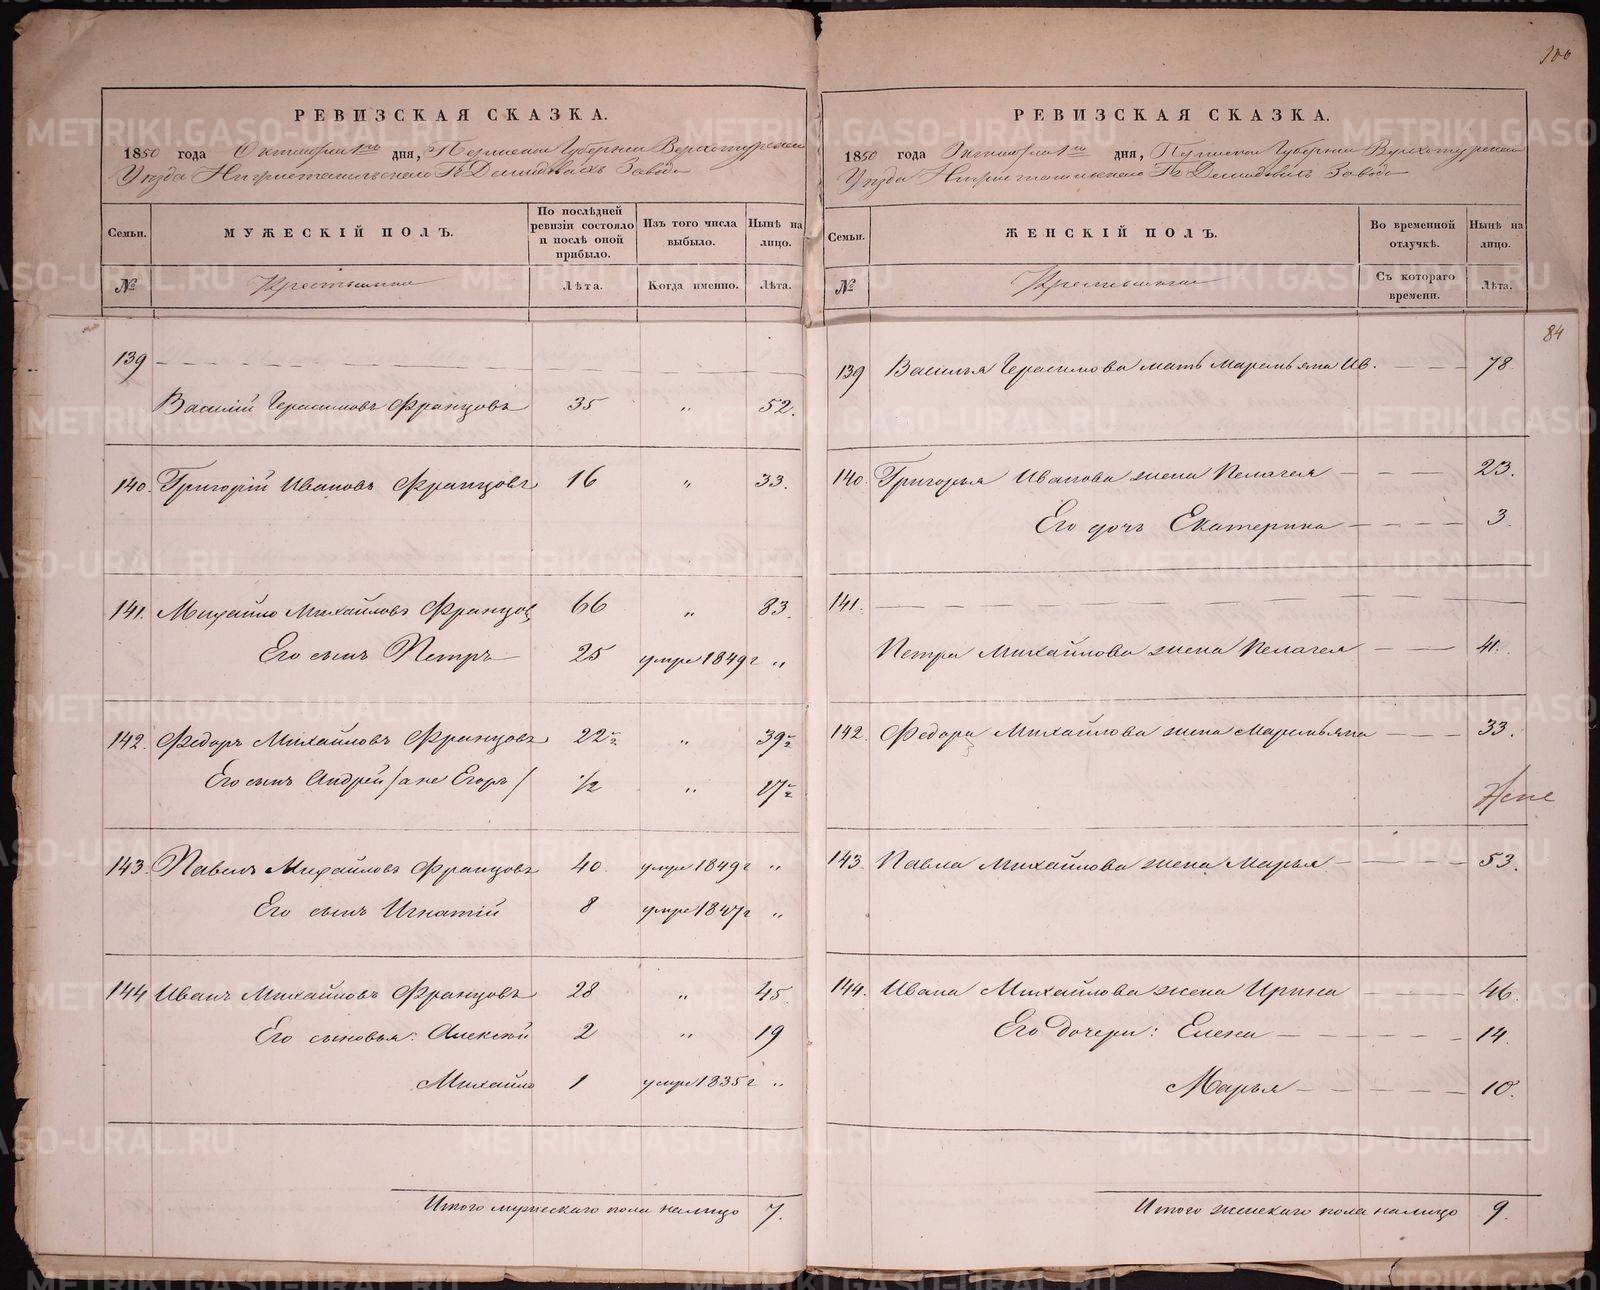 106
РЕВИЗСКАЯ СКАЗКА.
1850 года Октября 1го дня, Пермской Губернии Верхотурскаго
Уѣзда Нижнетагильскаго Гг. Демидовыхъ Завода
Семьи. МУЖЕСКІЙ ПОЛЪ. По послѣдней ревизіи состояло и послѣ оной прибыло. Изъ того числа выбыло. Нынѣ на лицо.
№ Крестьяне Лѣта. Когда именно. Лѣта.
139
Василій Герасимовъ Францовъ 35 " 52.
140. Григорій Ивановъ Францовъ 16 " 33.
141. Михайло Михайловъ Францовъ 66 " 83.
Его сынъ Петръ 25 умре 1849 г "
142. Федоръ Михайловъ Францовъ 22 ½ " 39 ½
Его сынъ Андрей /а не Егоръ/ ½ " 17 ½
143. Павелъ Михайловъ Францовъ 40. умре 1849 г "
Его сынъ Игнатій 8 умре 1847 г "
144 Иванъ Михайловъ Францовъ 28 " 45.
Его сыновья: Алексѣй 2 " 19
Михайло 1 умре 1835 г "
Итого мужескаго пола налицо 7.
РЕВИЗСКАЯ СКАЗКА.
1850 года Октября 1го дня, Пермской Губернии Верхотурскаго
Уѣзда Нижнетагильскаго Гг. Демидовыхъ Завода
Семьи. ЖЕНСКІЙ ПОЛЪ. Во временной отлучкѣ. Нынѣ на лицо.
№ Крестьяне Съ котораго времени. Лѣта.
84
139 Василья Герасимова мать Маремьяна Ив. 78.
140. Григорья Иванова жена Пелагея 23.
Его дочь Екатерина 3.
141.
Петра Михайлова жена Пелагея 41.
142. Федора Михайлова жена Маремьяна 33.
143. Павла Михайлова жена Марья 53.
144. Ивана Михайлова жена Ирина 46.
Его дочери: Елена 14.
Марья 10.
Итого женскаго пола налицо 9.
METRIKI.GASO-URAL.RU